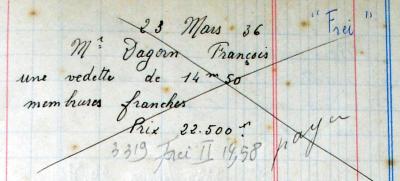 23 Mars 36 "Frei"
Mr Dagorn François
une vedette de 14m50
membrures franches
Prix 22.500 frs
3319 Frei II 14,58 payer